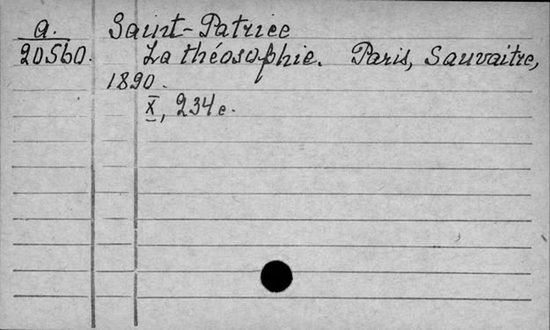 a. Saint-Patrice
20560. La théosophie. Paris, Sauvaitre,
1890.
X, 234 e.